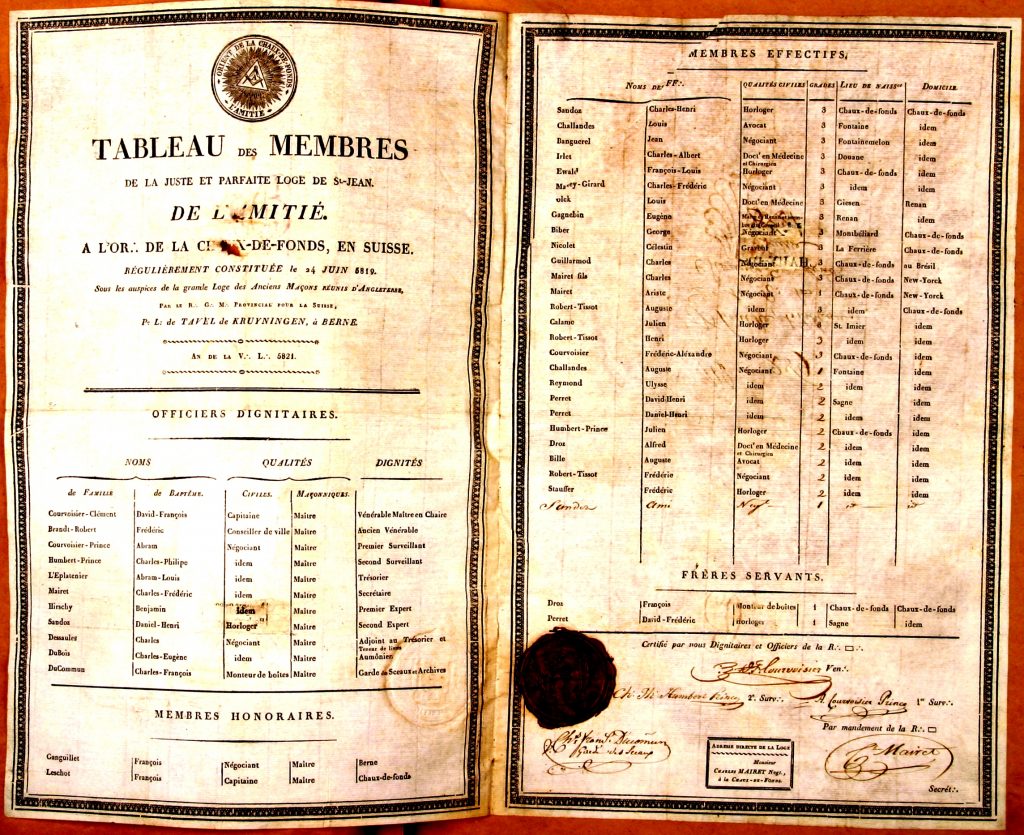 ORIENT DE LA CHAUX-DE-FONDS
L'AMITIE
TABLEAU DES MEMBRES
DE LA JUSTE ET PARFAITE LOGE DE St-JEAN.
DE L'AMITIÉ.
A L'OR∴ DE LA CHAUX-DE-FONDS, EN SUISSE,
RÉGULIÈREMENT CONSTITUÉE le 24 JUIN 5819.
Sous les auspices de la grande Loge des Anciens MAÇONS RÉUNIS D'ANGLETERRE,
PAR LE R∴ G∴ M∴ PROVINCIAL POUR LA SUISSE,
P∴ L∴ de TAVEL de KRUYNINGEN, à BERNE.
AN DE LA V∴ L∴ 5821.
OFFICIERS DIGNITAIRES.
NOMS QUALITÉS DIGNITÉS
de FAMILLE de BAPTÊME. CIVILES. MAÇONNIQUES.
Courvoisier-Clément David-François Capitaine Maître Vénérable Maître en Chaire
Brandt-Robert Frédéric Conseiller de ville Maître Ancien Vénérable
Courvoisier-Prince Abram Négociant Maître Premier Surveillant
Humbert-Prince Charles-Philipe idem Maître Second Surveillant
L'Eplatenier Abram-Louis idem Maître Trésorier
Mairet Charles-Frédéric idem Maître Secrétaire
Hirschy Benjamin idem Maître Premier Expert
Sandoz Daniel-Henri Horloger Maître Second Expert
Dessaules Charles Négociant Maître Adjoint au Trésorier et
Teneur de livres
DuBois Charles-Eugène idem Maître Aumônier
DuCommun Charles-François Monteur de boîtes Maître Garde des Sceaux et Archives
MEMBRES HONORAIRES.
Ganguillet François Négociant Maître Berne
Leschot François Capitaine Maître Chaux-de-fonds
MEMBRES EFFECTIFS,
NOMS DES FF∴ QUALITÉS CIVILES GRADES LIEU DE NAISSce DOMICILE
Sandoz Charles-Henri Horloger 3 Chaux-de-fonds Chaux-de-fonds
Challandes Louis Avocat 3 Fontaine idem
Banguerel Jean Négociant 3 Fontainemelon idem
Irlet Charles-Albert Doct' en Médecine 3 Douane idem
et Chirurgien
Ewald François-Louis Horloger 3 Chaux-de-fonds idem
Matey-Girard Charles-Frédéric Négociant 3 idem idem
olck Louis Doct' en Médecine 3 Giesen Renan
Gagnebin Eugène 3 Renan idem
Biber George Négociant 3 Montbéliard Chaux-de-fonds
Nicolet Célestin Graveur 3 La Ferrière Chaux-de-fonds
Guillarmod Charles Négociant 3 Chaux-de-fonds au Brésil
Mairet fils Charles Négociant 3 Chaux-de-fonds New-Yorck
Mairet Ariste Négociant 1 Chaux-de-fonds New-Yorck
Robert-Tissot Auguste idem 3 idem Chaux-de-fonds
Calame Julien Horloger 3 St. Imier idem
Robert-Tissot Henri Horloger 3 idem idem
Courvoisier Frédéric-Aléxandre Négociant 3 Chaux-de-fonds idem
Challandes Auguste Négociant 1 Fontaine idem
Reymond Ulysse idem 2 idem idem
Perret David-Henri idem 2 Sagne idem
Perret Daniel-Henri idem 2 idem idem
Humbert-Prince Julien Horloger 2 Chaux-de-fonds idem
Droz Alfred Doct' en Médecine 2 idem idem
et Chirurgien
Bille Auguste Avocat 2 idem idem
Robert-Tissot Frédéric Négociant 2 idem idem
Stauffer Frédéric Horloger 2 idem idem
Sandoz Ami Neg' 1 id id
FRÈRES SERVANTS.
Droz François Monteur de boîtes 1 Chaux-de-fonds Chaux-de-fonds
Perret David-Frédéric horloger 1 Sagne idem
Certifié par nous Dignitaires et Officiers de la R∴ □∴
Courvoisier Ven∴
Ch Ph Humbert Prince 2d. Surv∴ A. Courvoisier Prince 1er Surv∴
Par mandement de la R∴ □
Ducommun
Garde des Sceaux
ADRESSE DIRECTE DE LA LOGE
Monsieur
CHARLES MAIRET Negt.,
à la CHAUX-DE-FONDS.
Mairet
Secrét∴